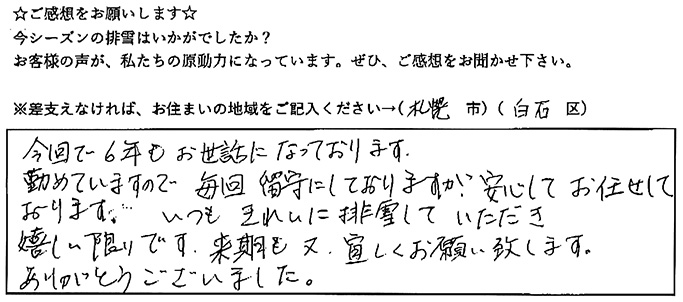 ☆ご感想をお願いします☆
今シーズンの排雪はいかがでしたか？
お客様の声が、私たちの原動力になっています。ぜひ、ご感想をお聞かせ下さい。
※差支えなければ、お住まいの地域をご記入ください→(札幌 市)(白石 区)
今回で6年もお世話になっております.
勤めていますので毎回留守にしておりますが安心してお任せして
おります。… いつもきれいに排雪していただき
嬉しい限りです.来期も又.宜しくお願い致します。
ありがとうございました。